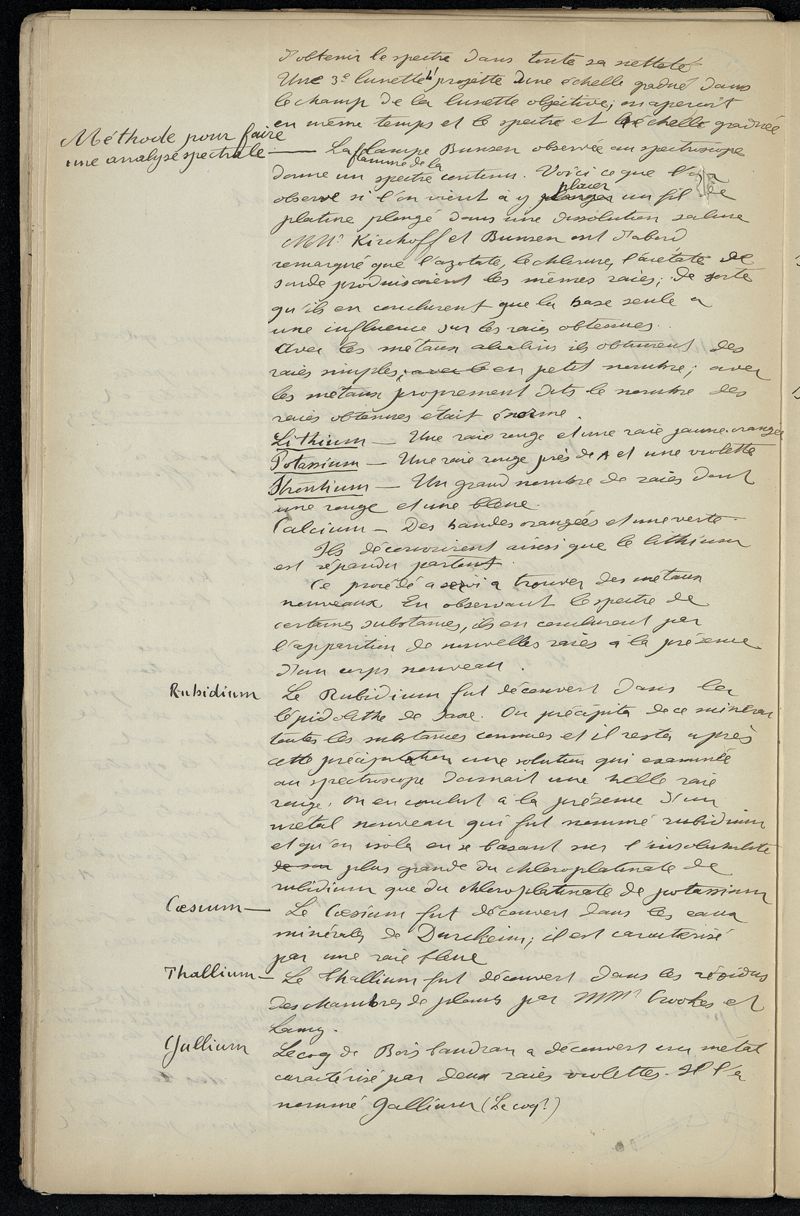 d'obtenir le spectre dans toute sa netteté.
Une 3e lunette L' projette d'une échelle gradué dans
le champ de la lunette objective; on aperçoit
en même temps et le spectre et l'échelle graduée
Méthode pour faire
une analyse spectrale — La flamme de la lampe Bunsen observée au spectroscope
donne un spectre continu. Voici ce que l'on
observe si l'on vient à y placer un fil de
platine plongé dans une dissolution saline
MMrs Kirchoff et Bunsen ont d'abord
remarqué que l'azotate, le chlorure, l'acétate de
soude produisaient les mêmes raies; de sorte
qu'ils en conclurent que la base seule a
une influence sur les raies obtenues.
Avec les métaux alcalins ils obtinrent des
raies simples, avec le en petit nombre; avec
les métaux proprement dits le nombre des
raies obtenues était énorme.
Lithium — Une raie rouge et une raie jaune orangée
Potassium — Une raie rouge près de A et une violette
Strontium — Un grand nombre de raies dont
une rouge et une bleue.
Calcium — Des bandes orangées et une verte.
Ils découvrirent ainsi que le lithium
est répandu partout.
Ce procédé a servi a trouver des métaux
nouveaux. En observant le spectre de
certaines substances, ils en conclurent par
l'apparition de nouvelles raies à la présence
d'un corps nouveau.
Rubidium Le Rubidium fut découvert dans la
lépidolithe de Saxe. On précipita de ce minerai
toutes les substances connues et il resta après
cette précipitation une solution qui examinée
au spectroscope donnait une belle raie
rouge. On en conclut à la présence d'un
métal nouveau qui fut nommé rubidium
et qu'on isola en se basant sur l'insolubilité
de son plus grande du chloroplatinate de
rubidium que du chloroplatinate de potassium
Cæsium — Le Cæsium fut découvert dans les eaux
minérales de Durckeim; il est caractérisé
par une raie bleue
Thallium — Le Thallium fut découvert dans les résidus
des chambres de plomb par MMrs Crookes et
Lamy.
Gallium Lecoq de Boisbaudran a découvert un métal
caractérisé par deux raies violettes. Il l'a
nommé Gallium (Le coq?)